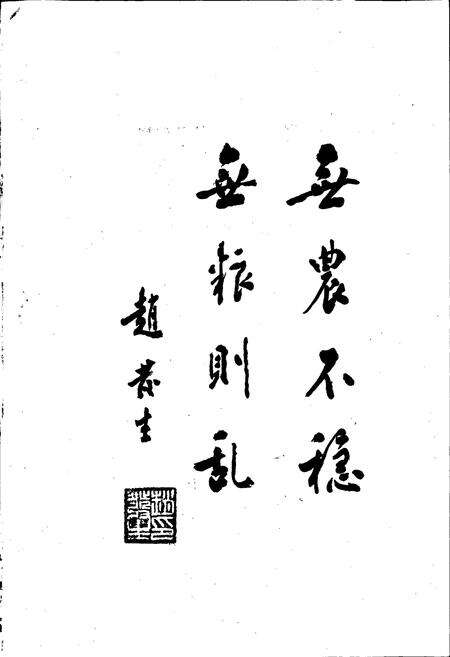 無農不穩
無粮則乱
趙發生